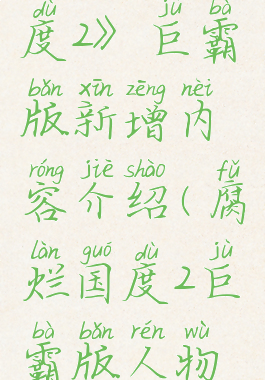 dù jù bà
度2》巨霸
bǎn xīn zēng nèi
版新增内
róng jiè shào fǔ
容介绍(腐
làn guó dù jù
烂国度2巨
bà bǎn rén wù
霸版人物